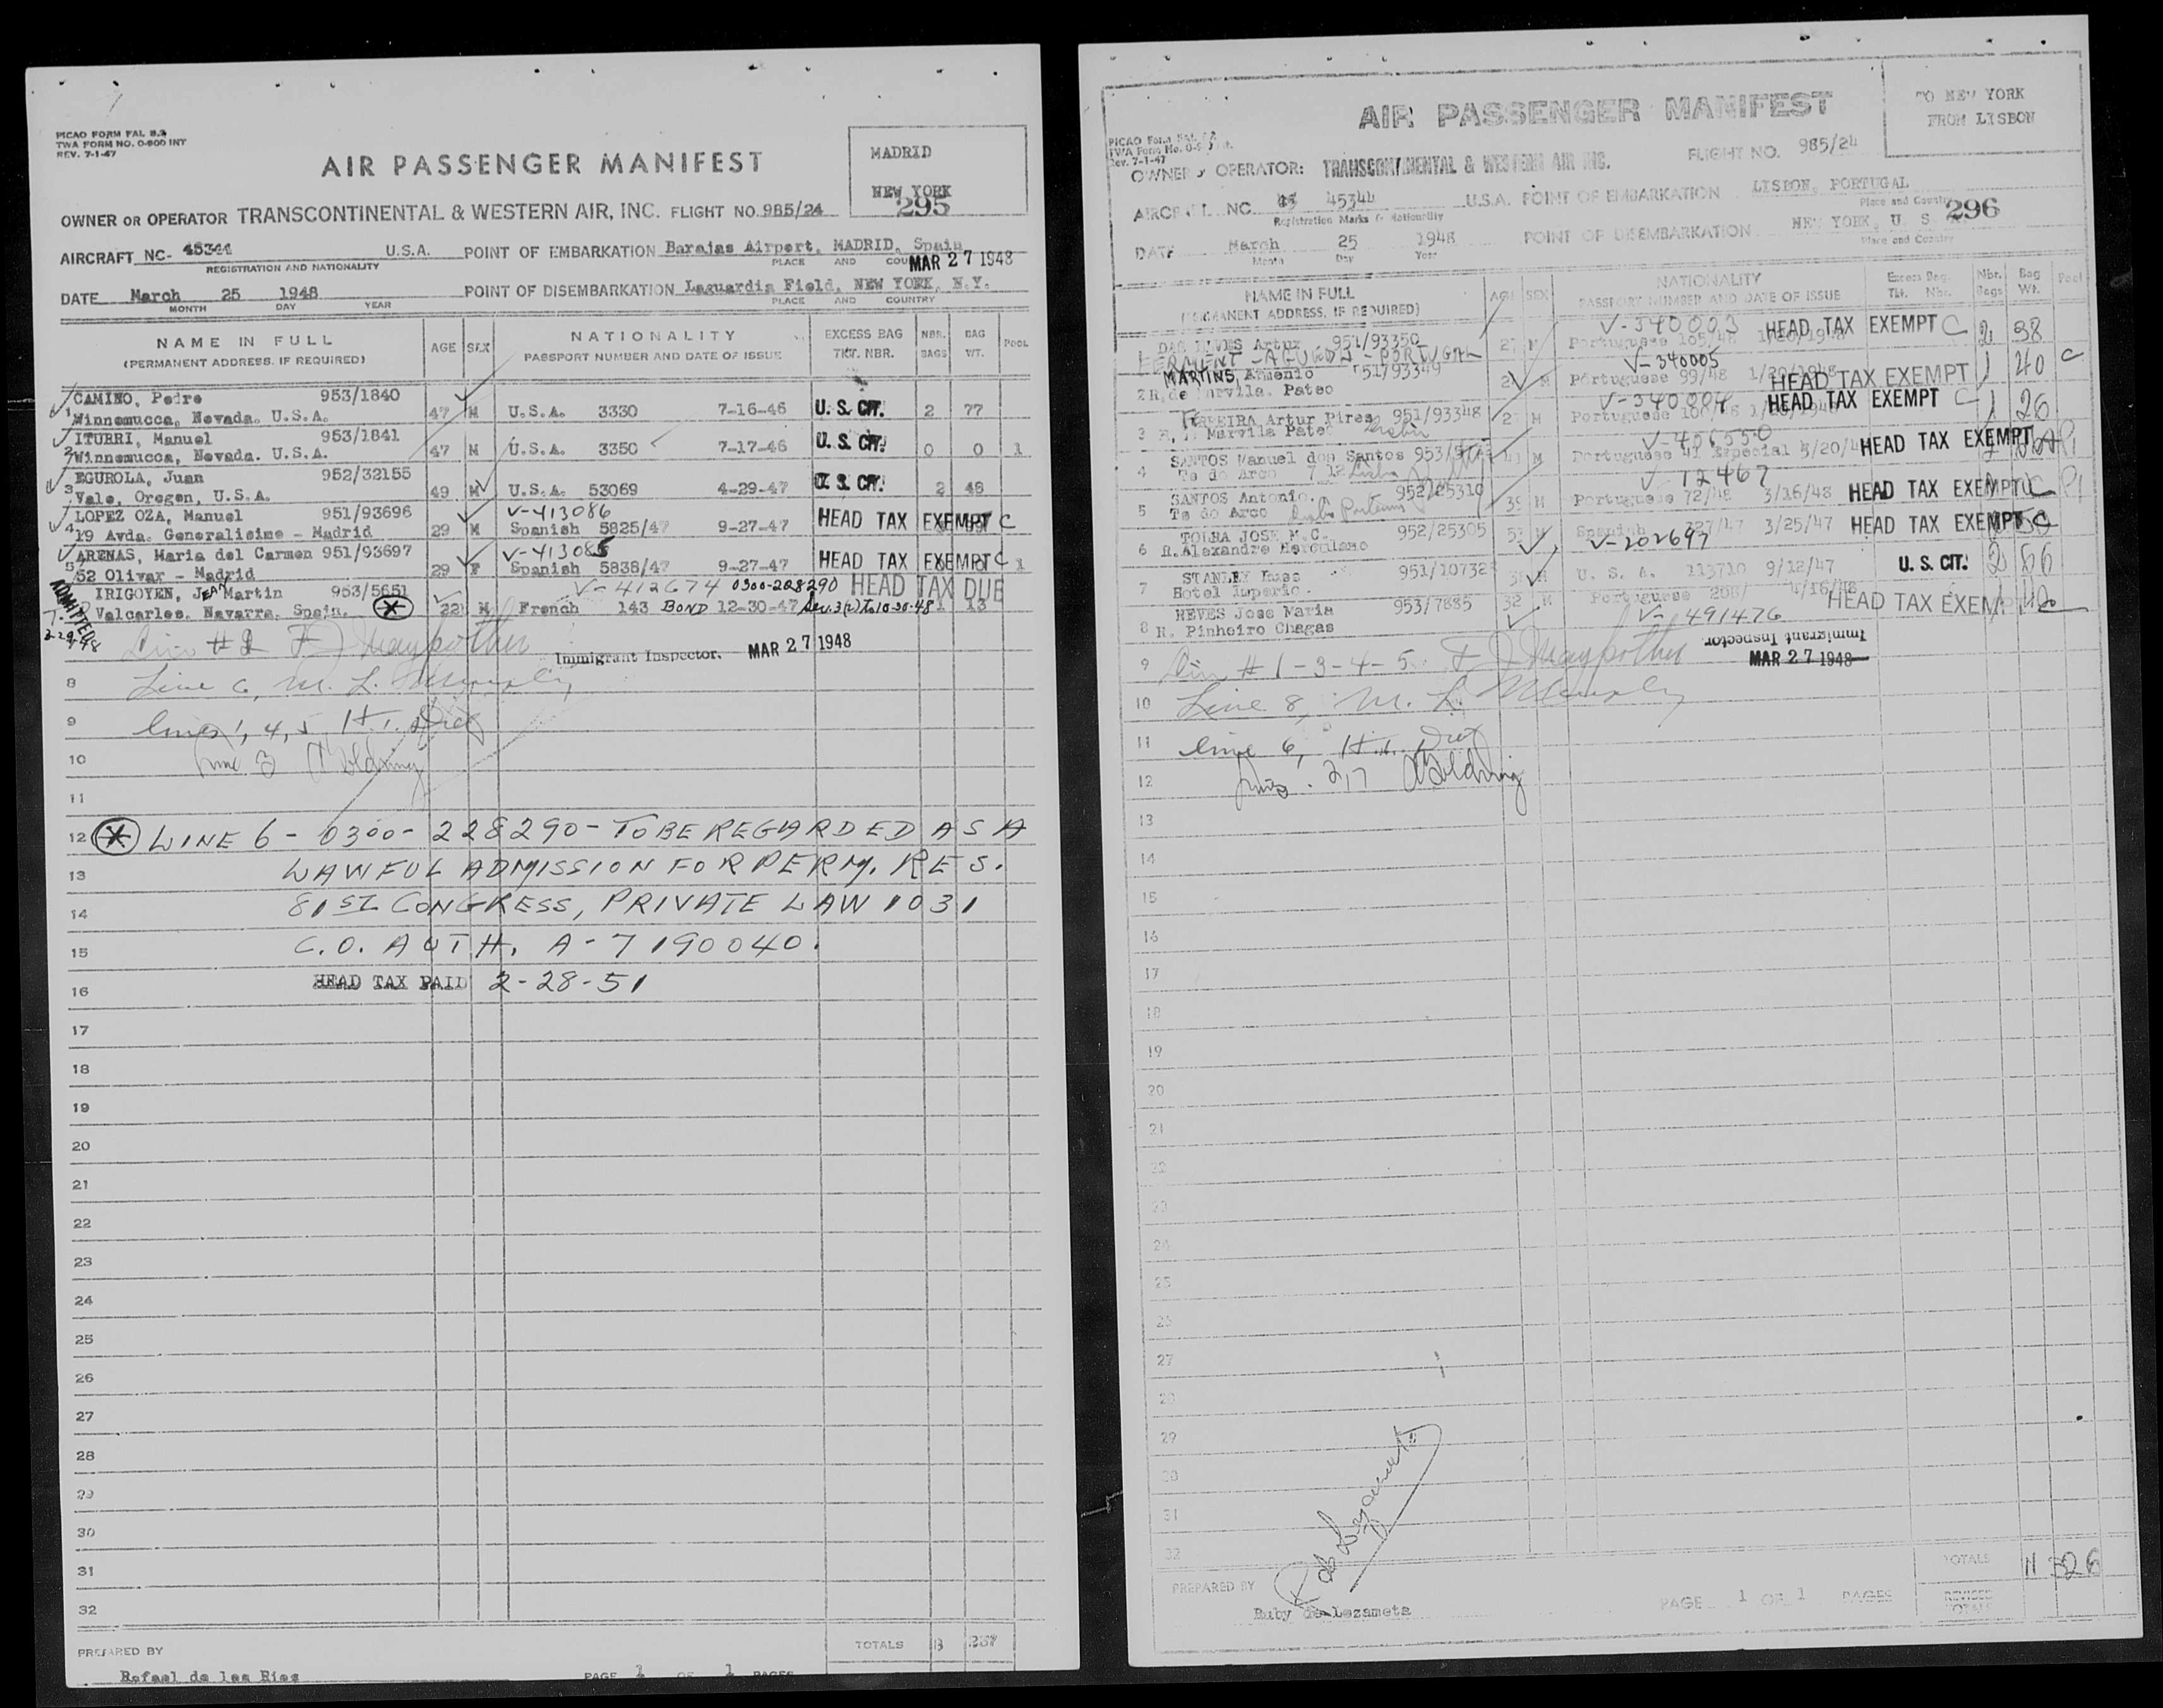 PICAO FORM FAL 8.2
TWA FORM NO. O-800 INT
REV. 7-1-47
AIR PASSENGER MANIFEST
MADRID
NEW YORK
295
OWNER OR OPERATOR TRANSCONTINENTAL & WESTERN AIR, INC. FLIGHT NO. 985/24
AIRCRAFT NC- 45344 U.S.A. POINT OF EMBARKATION Barajas Airport, MADRID, Spain
REGISTRATION AND NATIONALITY PLACE AND COUNTRY
MAR 27 1948
DATE March 25 1948 POINT OF DISEMBARKATION Laguardia Field, NEW YORK, N.Y.
MONTH DAY YEAR PLACE AND COUNTRY
NAME IN FULL AGE SEX NATIONALITY EXCESS BAG NBR. BAG POOL
(PERMANENT ADDRESS, IF REQUIRED) PASSPORT NUMBER AND DATE OF ISSUE TKT. NBR. BAGS WT.
CAMINO, Pedro 953/1840
1 Winnemucca, Nevada. U.S.A. 47 M U.S.A. 3330 7-16-46 U.S. CIT. 2 77
ITURRI, Manuel 953/1841
2 Winnemucca, Nevada. U.S.A. 47 M U.S.A. 3350 7-17-46 U.S. CIT. 0 0 1
EGUROLA, Juan 952/32155
3 Vale, Oregon, U.S.A. 49 M U.S.A. 53069 4-29-47 U.S. CIT. 2 48
LOPEZ OZA, Manuel 951/93696 V-413086
4 19 Avda. Generalisimo - Madrid 29 M Spanish 5825/47 9-27-47 HEAD TAX EXEMPT C
ARENAS, Maria del Carmen 951/93697 V-413085
5 52 Olivar - Madrid 29 F Spanish 5838/47 9-27-47 HEAD TAX EXEMPT C 1
IRIGOYEN, JEAN Martin 953/5651 V-412674 0300-228290 HEAD TAX DUE
Valcarlos, Navarra, Spain. 22 M French 143 BOND 12-30-47 1 13
ADMITTED
Immigrant Inspector. MAR 27 1948
8 Line 6, M. L.
9 lines 1, 4, 5
10
11
12 * LINE 6 - 0300-228290 - TO BE REGARDED AS A
13 LAWFUL ADMISSION FOR PERM. RES.
14 81ST CONGRESS, PRIVATE LAW 1031
15 C.O. AUTH. A-7190040.
16 HEAD TAX PAID 2-28-51
17
18
19
20
21
22
23
24
25
26
27
28
29
30
31
32
PREPARED BY TOTALS
Rafael de las Rios PAGE 1 OF 1 PAGES
AIR PASSENGER MANIFEST
TO NEW YORK
FROM LISBON
Rev. 7-1-47
OPERATOR: TRANSCONTINENTAL & WESTERN AIR INC. FLIGHT NO. 985/24
NC. 45344 U.S.A. POINT OF EMBARKATION LISBON, PORTUGAL
Registration Marks & Nationality Place and Country
296
DATE March 25 1948 POINT OF DISEMBARKATION NEW YORK, U. S.
Month Day Year Place and Country
NAME IN FULL AGE SEX NATIONALITY Excess Bag. Nbr. Bag Pool
(PERMANENT ADDRESS, IF REQUIRED) PASSPORT NUMBER AND DATE OF ISSUE Tkt. Nbr. Bags Wt.
V-340003 HEAD TAX EXEMPT C 2 38
Artur 951/93350 Portuguese 105/48 1/20/1948
AGUEDA - PORTUGAL V-340005
MARTINS, Armenio 951/93349 Portuguese 99/48 1/20/1948 HEAD TAX EXEMPT 1 40 C
2 R. de Marvila. Pateo V-340004
FERREIRA Artur Pires 951/93348 M Portuguese HEAD TAX EXEMPT C 1 26
3 Marvila Pateo
SANTOS Manuel dos Santos V-456550 Portuguese 41 Especial HEAD TAX EXEMPT
4 Te do Arco
SANTOS Antonio. 952/25310 V 12467
5 Te do Arco 39 M Portuguese 72/48 3/16/48 HEAD TAX EXEMPT
TOLRA JOSE M.C. 952/25305 Spanish 327/47 3/25/47 HEAD TAX EXEMPT
6 R. Alexandre Herculano V-202697
STANLEY 951/10732
7 Hotel Imperio. U. S. A. 113710 9/12/47 U.S. CIT. 2 86
REVES Jose Maria 953/7885 32 M Portuguese HEAD TAX EXEMPT
8 R. Pinheiro Chagas V-491476
Immigrant Inspector
9 # 1-3-4-5 MAR 27 1948
10 Line 8, M. L.
11 line 6,
12
13
14
15
16
17
18
19
20
21
22
23
24
25
26
27
28
29
30
31
32
PREPARED BY TOTALS 11 326
Ruby de Lezameta PAGE 1 OF 1 PAGES REVISED TOTALS